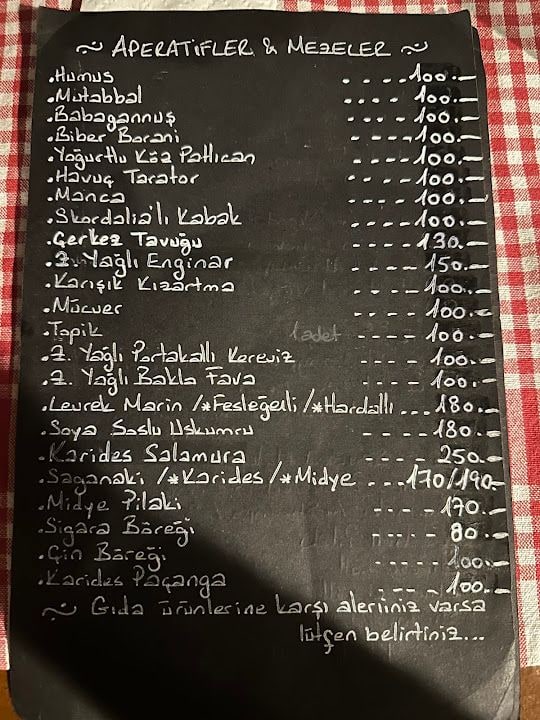 ~ APERATİFLER & MEZELER ~
.Humus ....100.-
.Mutabbal ....100.-
.Babagannuş ....100.-
.Biber Borani ----100.-
.Yoğurtlu Köz Patlıcan ----100.-
.Havuç Tarator ----100.-
.Manca ----100.-
.Skordalia'lı Kabak ----100.-
.Çerkez Tavuğu ----130.-
.Z. Yağlı Enginar ----150.-
.Karışık Kızartma ----100.-
.Mücver ----100.-
.Topik 1 adet ----100.-
.Z. Yağlı Portakallı Kereviz ----100.-
.Z. Yağlı Bakla Fava ----100.-
.Levrek Marin /*Fesleğenli /*Hardallı ...180.-
.Soya Soslu Uskumru ----180.-
.Karides Salamura ----250.-
.Saganaki /*Karides /*Midye ...170/190.-
.Midye Pilaki ----170.-
.Sigara Böreği ----80.-
.Çin Böreği ----100.-
.Karides Paçanga ----100.-
~ Gıda ürünlerine karşı alerjiniz varsa
lütfen belirtiniz...